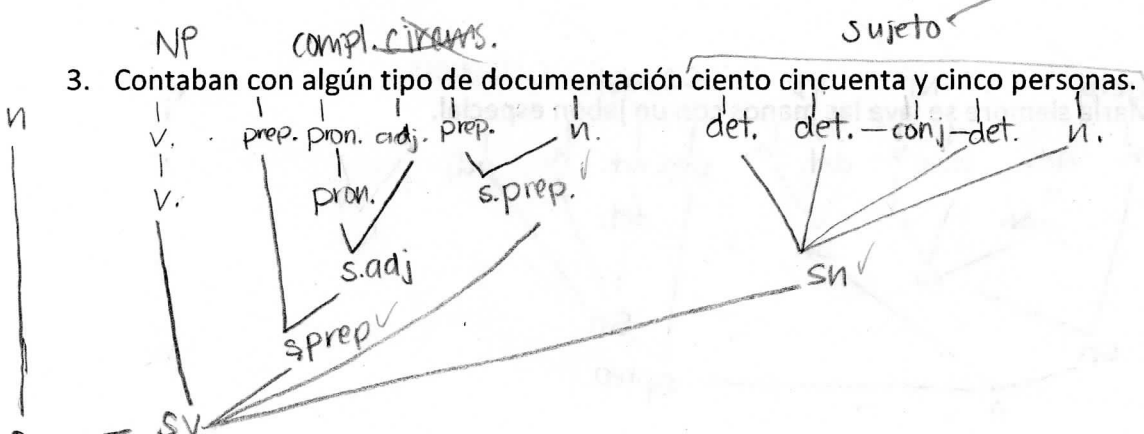 NP compl. circms. sujeto
3. Contaban con algún tipo de documentación ciento cincuenta y cinco personas.
n v. prep. pron. adj. prep. n. det. det. – conj – det. n.
v. pron. s.prep.
s.adj sn
sprep
SV